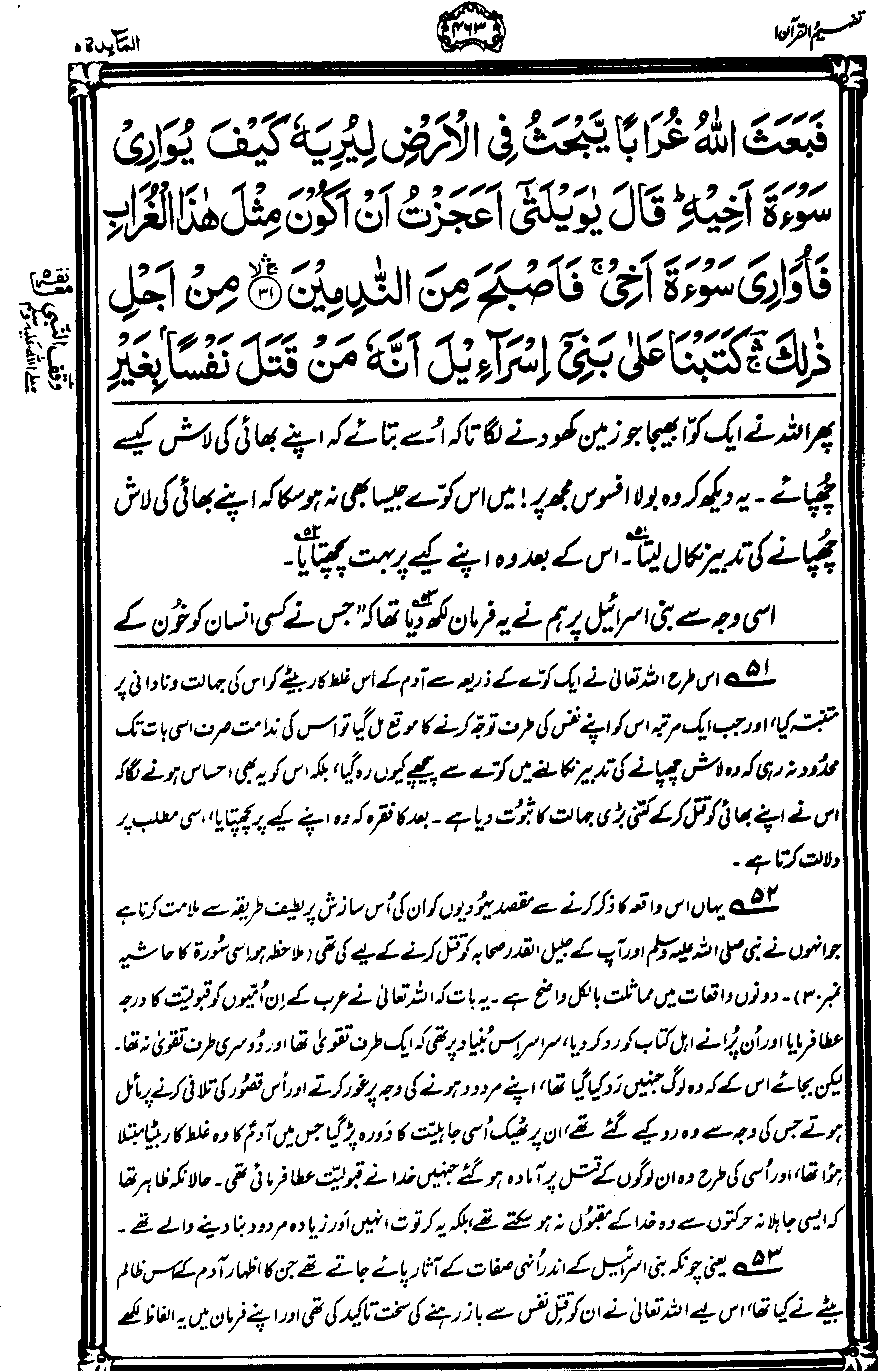 تفہیم القرآن ۱
۴۶۳
المائدۃ ۵
فَبَعَثَ اللّٰهُ غُرَابًا يَّبْحَثُ فِي الْاَرْضِ لِيُرِيَهٗ كَيْفَ يُوَارِيْ
سَوْءَةَ اَخِيْهِ ؕ قَالَ يٰوَيْلَتٰۤى اَعَجَزْتُ اَنْ اَكُوْنَ مِثْلَ هٰذَا الْغُرَابِ
فَاُوَارِيَ سَوْءَةَ اَخِيْ ۚ فَاَصْبَحَ مِنَ النّٰدِمِيْنَ ﴿۳۱﴾ مِنْ اَجْلِ
ذٰلِكَ ۛۚ كَتَبْنَا عَلٰى بَنِيْۤ اِسْرَآءِيْلَ اَنَّهٗ مَنْ قَتَلَ نَفْسًۢا بِغَيْرِ
وقف النبی صلے اللہ علیہ وسلم
پھر اللہ نے ایک کوّا بھیجا جو زمین کھودنے لگا تاکہ اُسے بتائے کہ اپنے بھائی کی لاش کیسے
چُھپائے۔ یہ دیکھ کر وہ بولا افسوس مجھ پر! میں اس کوّے جیسا بھی نہ ہوسکا کہ اپنے بھائی کی لاش
چُھپانے کی تدبیر نکال لیتا ۵۱۔ اس کے بعد وہ اپنے کیے پر بہت پچھتایا ۵۲۔
اسی وجہ سے بنی اسرائیل پر ہم نے یہ فرمان لکھ دیا تھا ۵۳ کہ "جس نے کسی انسان کو خُون کے
۵۱ اس طرح اللہ تعالیٰ نے ایک کوّے کے ذریعہ سے آدم کے اُس غلط کار بیٹے کو اس کی جہالت و نادانی پر
متنبّہ کیا، اور جب ایک مرتبہ اس کو اپنے نفس کی طرف توجّہ کرنے کا موقع مل گیا تو اُس کی ندامت صرف اسی بات تک
محدُود نہ رہی کہ وہ لاش چھپانے کی تدبیر نکالنے میں کوّے سے پیچھے کیوں رہ گیا، بلکہ اس کو یہ بھی احساس ہونے لگا کہ
اس نے اپنے بھائی کو قتل کرکے کتنی بڑی جہالت کا ثبوت دیا ہے۔ بعد کا فقرہ کہ وہ اپنے کیے پر پچھتایا، اسی مطلب پر
دلالت کرتا ہے۔
۵۲ یہاں اس واقعہ کا ذکر کرنے سے مقصد یہُودیوں کو ان کی اُس سازش پر لطیف طریقہ سے ملامت کرنا ہے
جو انہوں نے نبی صلی اللہ علیہ وسلم اور آپ کے جلیل القدر صحابہ کو قتل کرنے کے لیے کی تھی (ملاحظہ ہو اسی سُورۃ کا حاشیہ
نمبر ۳۰)۔ دونوں واقعات میں مماثلت بالکل واضح ہے۔ یہ بات کہ اللہ تعالیٰ نے عرب کے اِن اُمّیوں کو قبولیّت کا درجہ
عطا فرمایا اور اُن پُرانے اہل کتاب کو رد کر دیا، سراسر اس بُنیاد پر تھی کہ ایک طرف تقویٰ تھا اور دُوسری طرف تقویٰ نہ تھا۔
لیکن بجائے اس کے کہ وہ لوگ جنہیں رَد کیا گیا تھا، اپنے مردود ہونے کی وجہ پر غور کرتے اور اُس قصُور کی تلافی کرنے پر مائل
ہوتے جس کی وجہ سے وہ رد کیے گئے تھے، ان پر ٹھیک اُسی جاہلیّت کا دَورہ پڑ گیا جس میں آدمؑ کا وہ غلط کار بیٹا مبتلا
ہُوا تھا، اور اُسی کی طرح وہ ان لوگوں کے قتل پر آمادہ ہو گئے جنہیں خدا نے قبولیّت عطا فرمائی تھی۔ حالانکہ ظاہر تھا
کہ ایسی جاہلانہ حرکتوں سے وہ خدا کے مقبُول نہ ہو سکتے تھے، بلکہ یہ کرتوت انہیں اَور زیادہ مردود بنا دینے والے تھے۔
۵۳ یعنی چونکہ بنی اسرائیل کے اندر اُنہی صفات کے آثار پائے جاتے تھے جن کا اظہار آدم کے اس ظالم
بیٹے نے کیا تھا، اس لیے اللہ تعالیٰ نے ان کو قتلِ نفس سے باز رہنے کی سخت تاکید کی تھی اور اپنے فرمان میں یہ الفاظ لکھے